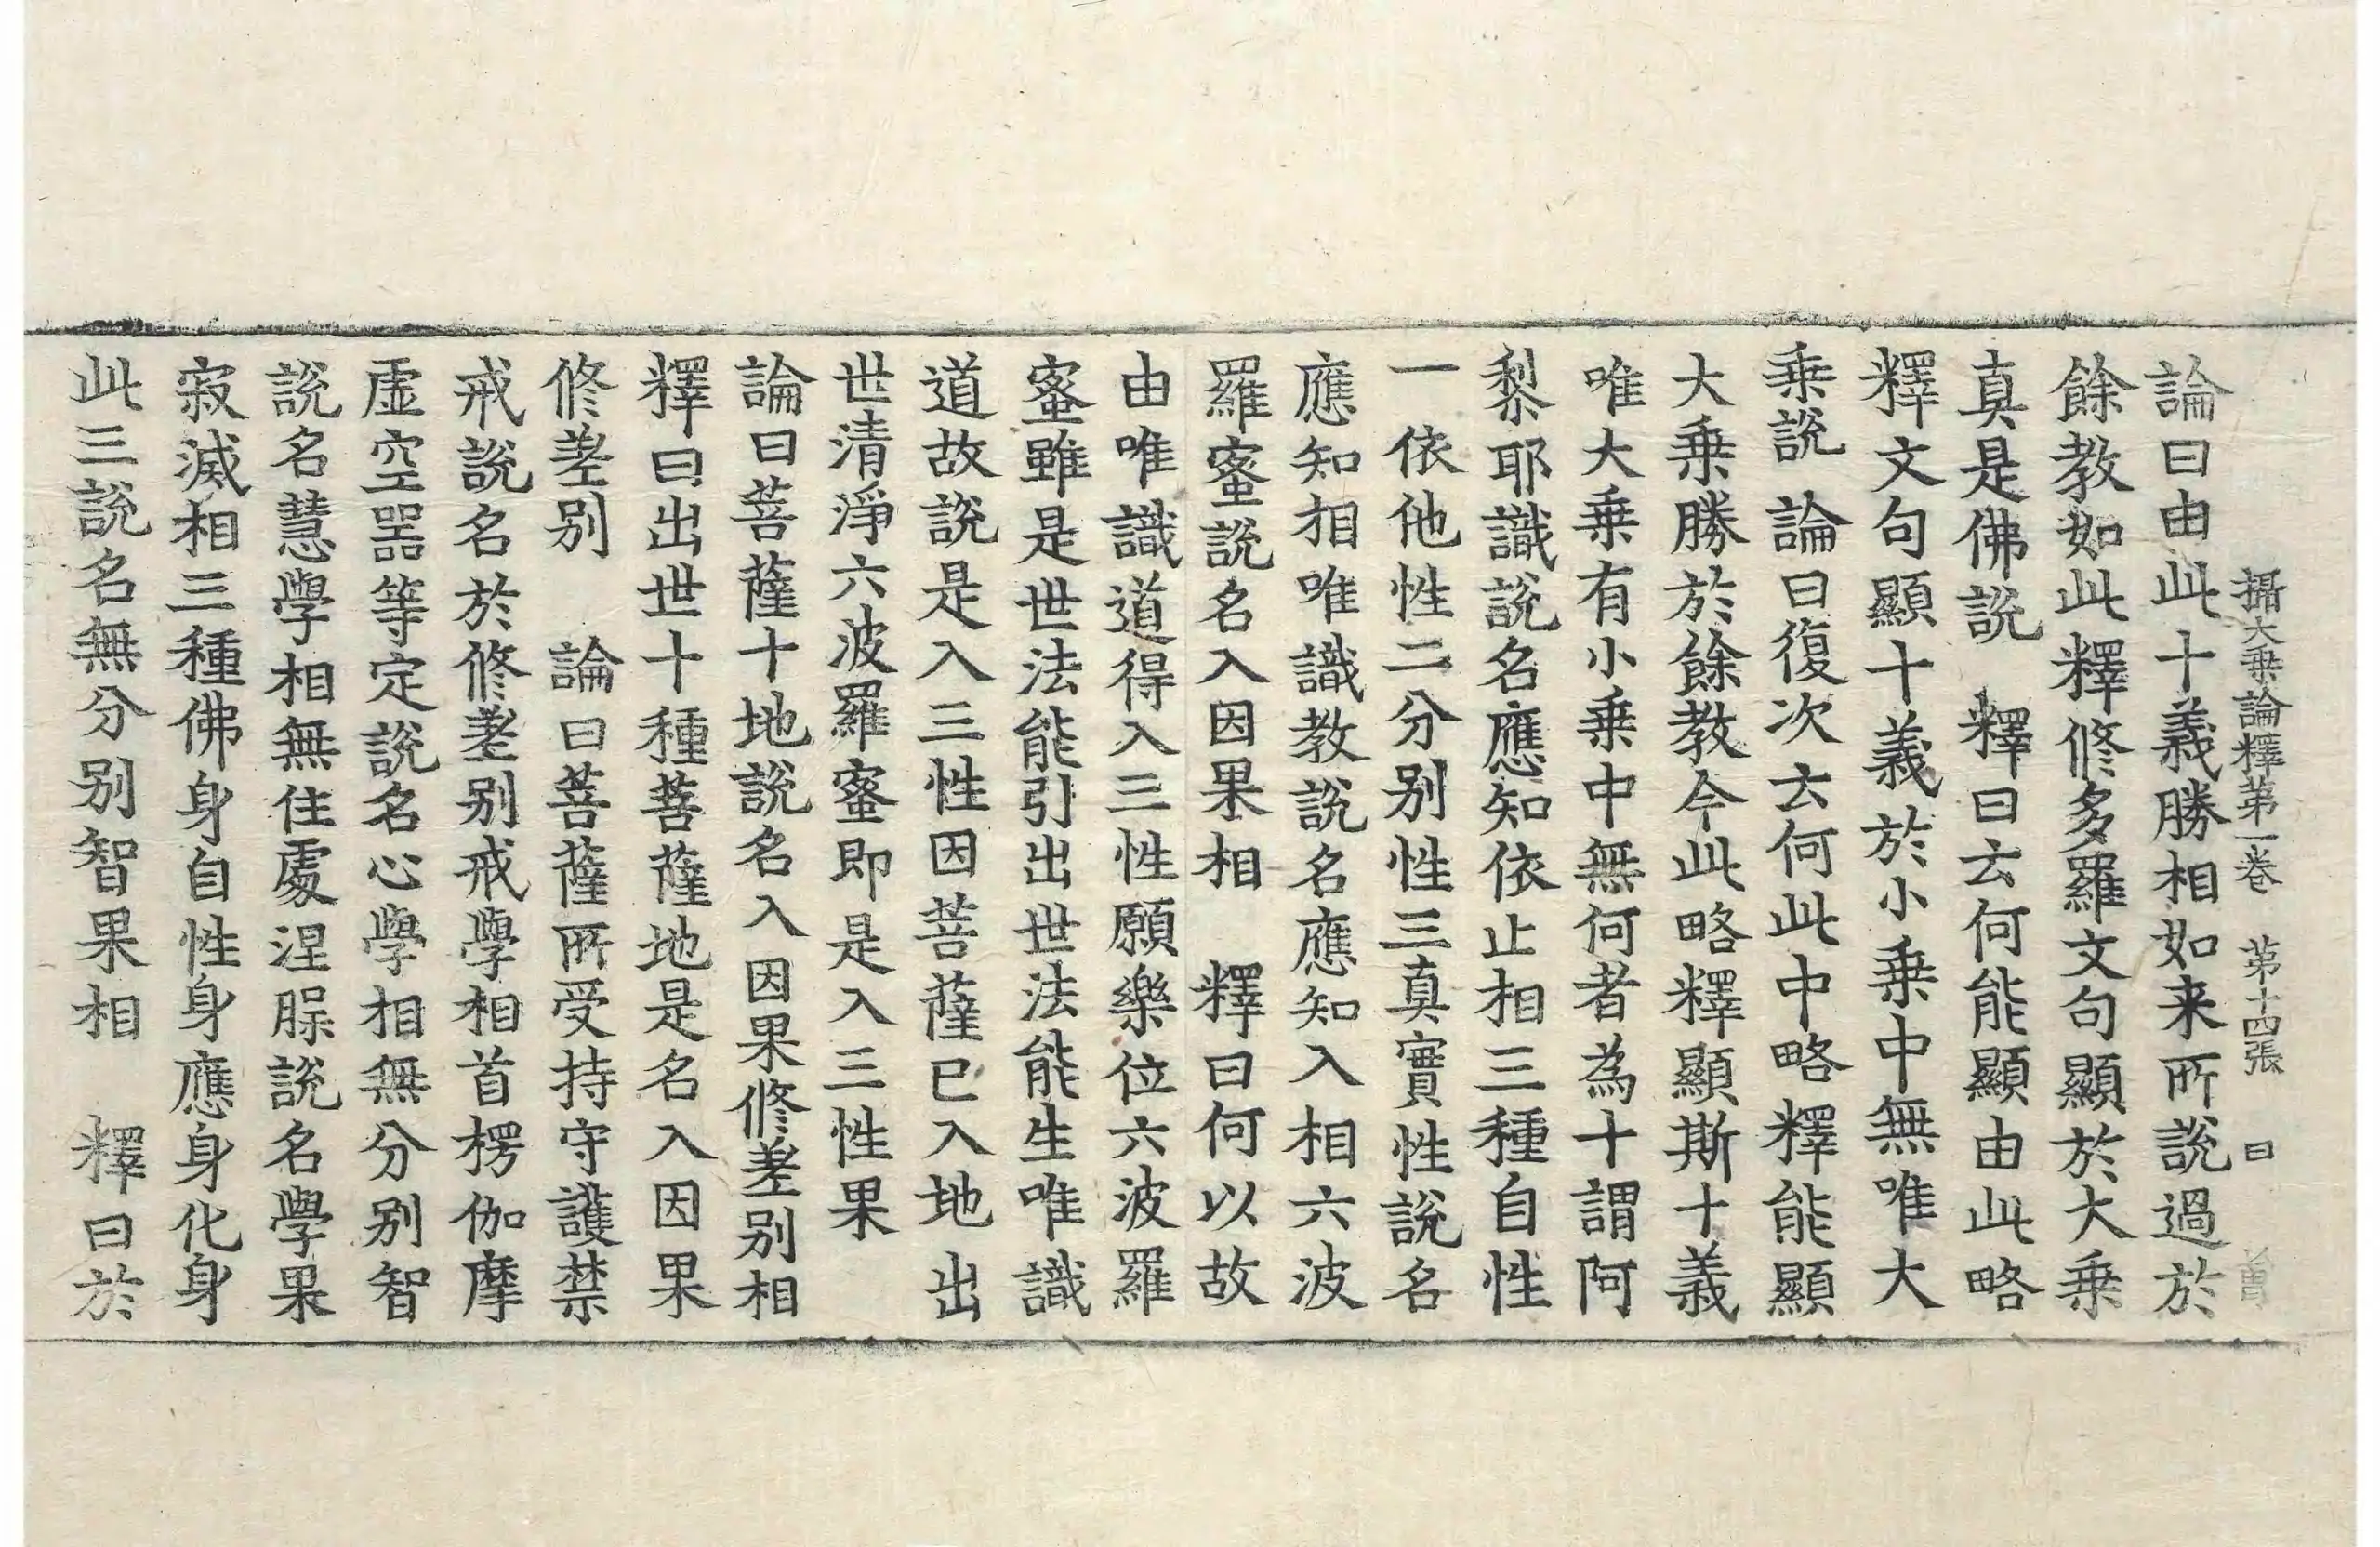 攝大乗論釋第一卷 第十四張 曰
論曰由此十義勝相如来所說過於
餘教如此釋修多羅文句顯於大乗
真是佛說 釋曰云何能顯由此略
釋文句顯十義於小乗中無唯大
乗說 論曰復次云何此中略釋能顯
大乗勝於餘教今此略釋顯斯十義
唯大乗有小乗中無何者為十謂阿
黎耶識說名應知依止相三種自性
一依他性二分別性三真實性說名
應知相唯識教說名應知入相六波
羅蜜說名入因果相 釋曰何以故
由唯識道得入三性願樂位六波羅
蜜雖是世法能引出世法能生唯識
道故說是入三性因菩薩已入地出
世清淨六波羅蜜即是入三性果
論曰菩薩十地說名入因果修差別相
釋曰出世十種菩薩地是名入因果
修差別 論曰菩薩所受持守護禁
戒說名於修差別戒學相首楞伽摩
虛空噐等定說名心學相無分別智
說名慧學相無住處涅槃說名學果
寂滅相三種佛身自性身應身化身
此三說名無分別智果相 釋曰於